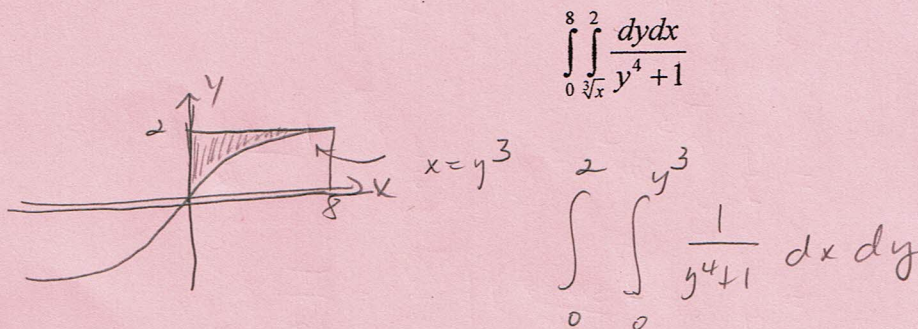 ∫₀⁸ ∫_∛x² dydx / (y⁴ + 1)
y
2
x
8
x = y³
∫₀² ∫₀^y³ 1/(y⁴+1) dx dy